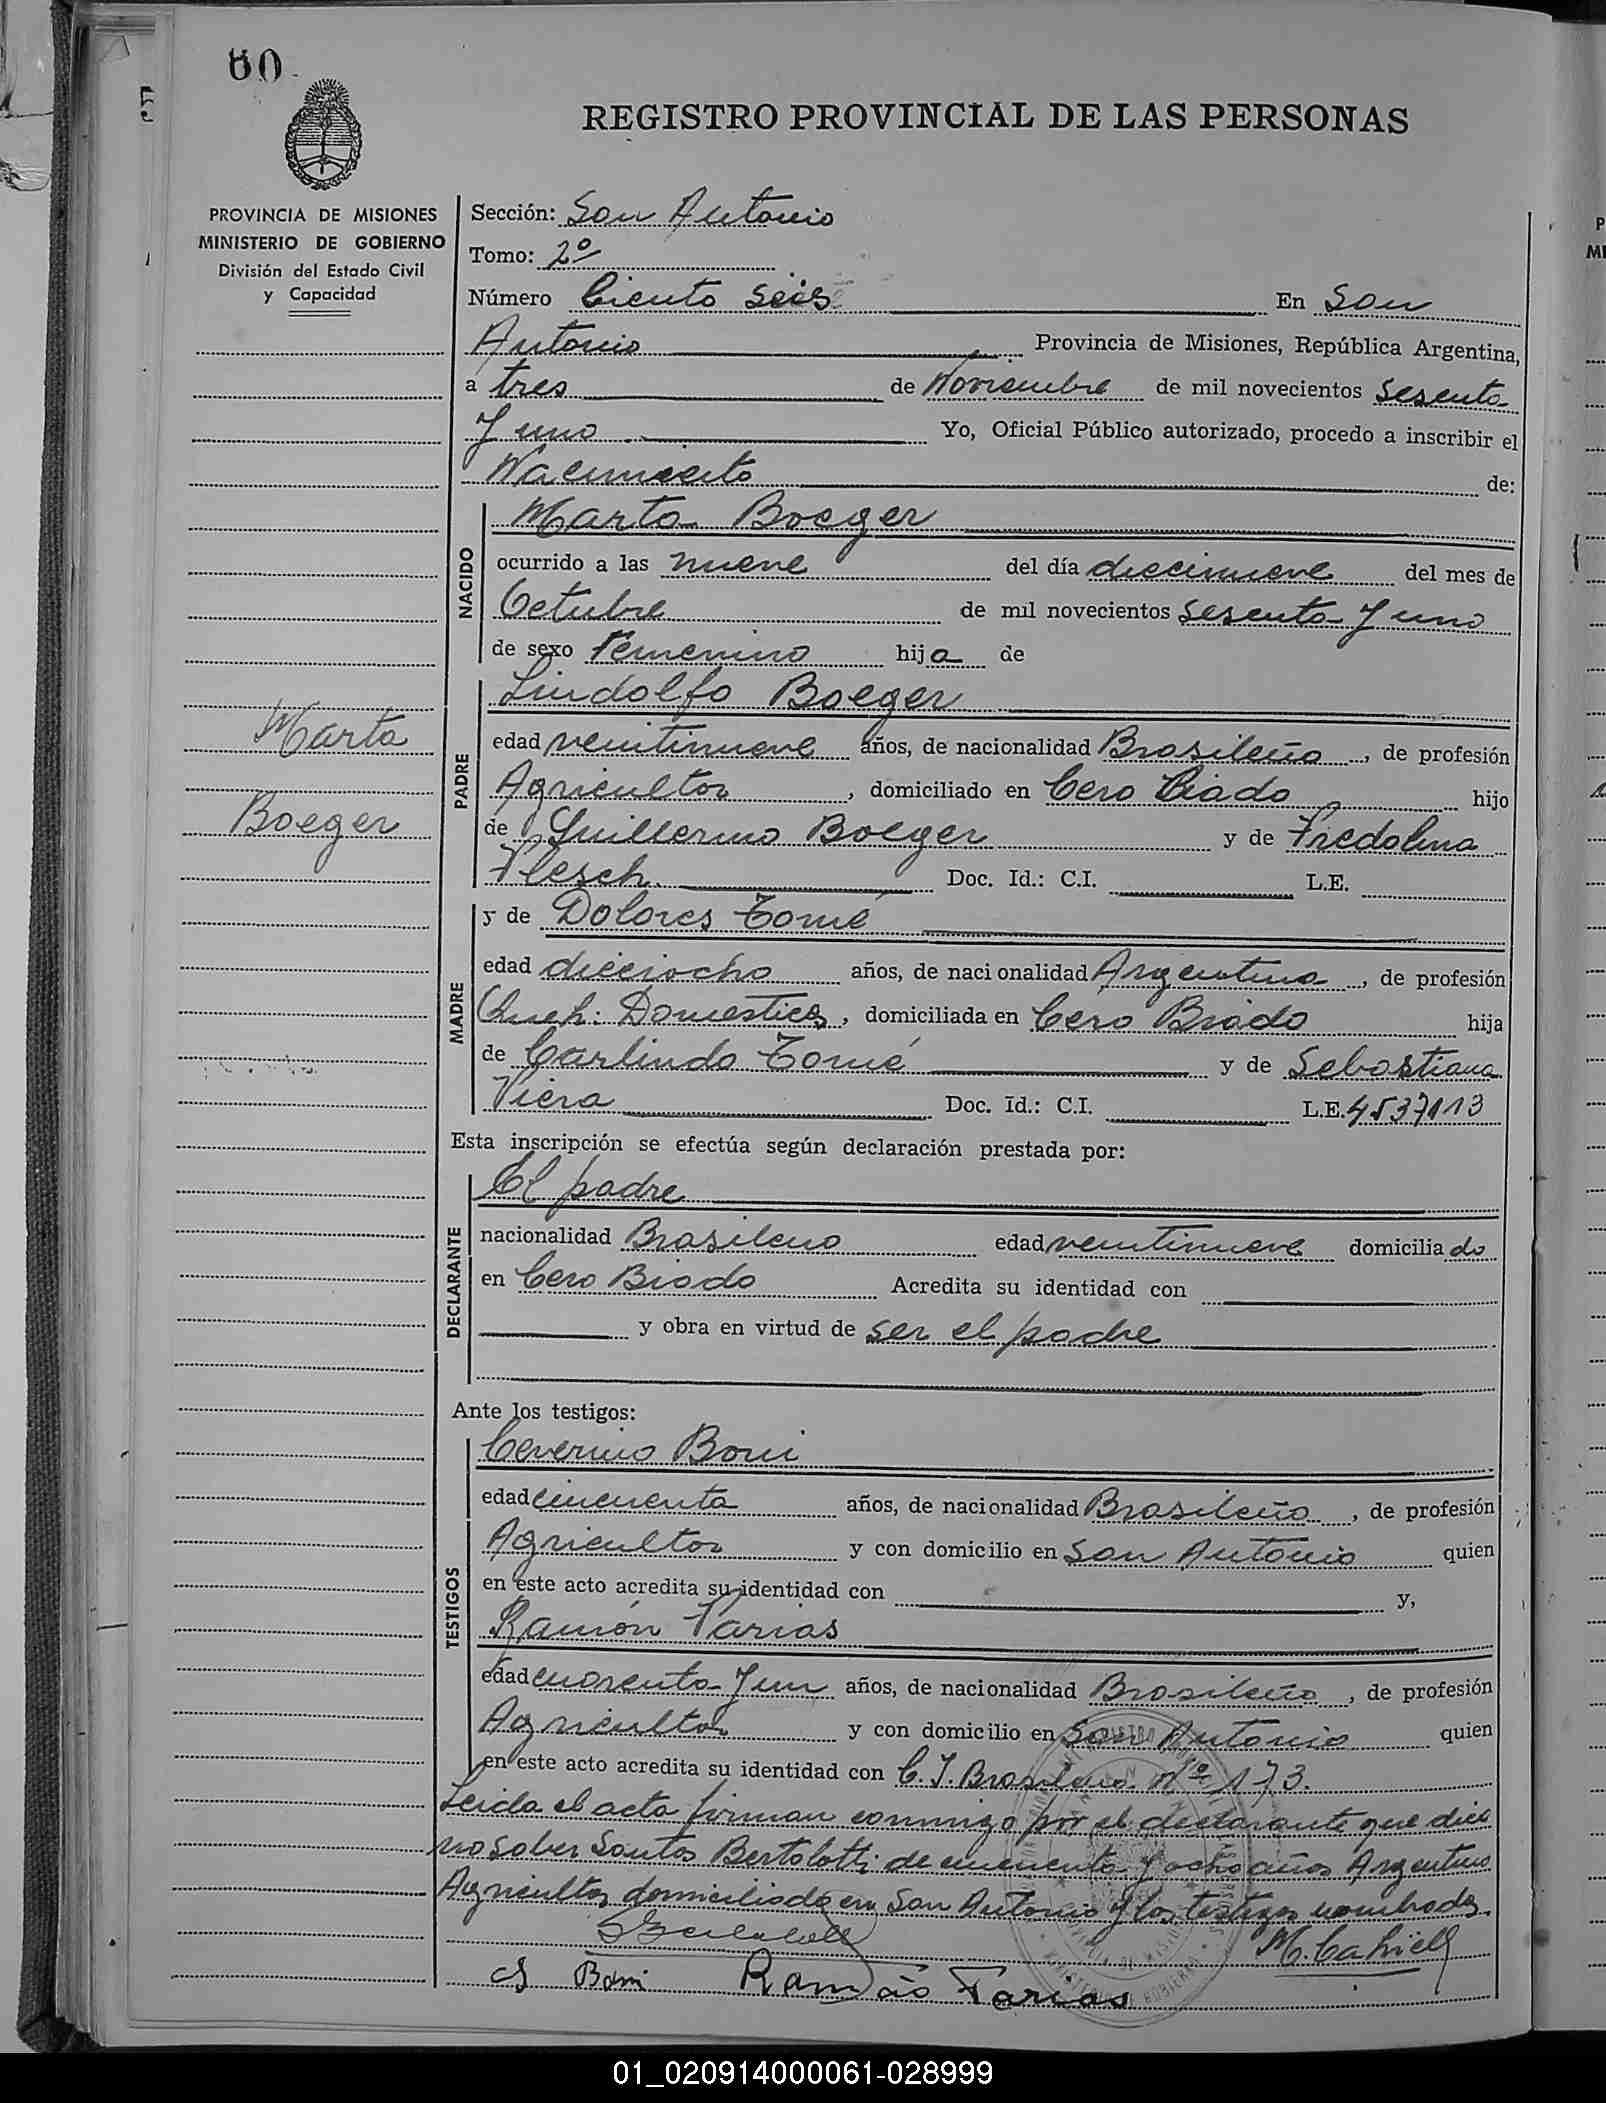 60
REGISTRO PROVINCIAL DE LAS PERSONAS
PROVINCIA DE MISIONES
MINISTERIO DE GOBIERNO
División del Estado Civil
y Capacidad
Marta
Boeger
Sección: San Antonio
Tomo: 2º
Número Ciento seis En San
Antonio Provincia de Misiones, República Argentina,
a tres de Noviembre de mil novecientos sesenta
y uno Yo, Oficial Público autorizado, procedo a inscribir el
Nacimiento de:
NACIDO
Marta Boeger
ocurrido a las nueve del día diecinueve del mes de
Octubre de mil novecientos sesenta y uno
de sexo Femenino hija de
PADRE
Lindolfo Boeger
edad veintinueve años, de nacionalidad Brasileña, de profesión
Agricultor, domiciliado en Cero Biado hijo
de Guillermo Boeger y de Fredolina
Flesch Doc. Id.: C.I. L.E.
MADRE
y de Dolores Tomé
edad dieciocho años, de nacionalidad Argentina, de profesión
Queh: Domesticos, domiciliada en Cero Biado hija
de Carlindo Tomé y de Sebastiana
Viera Doc. Id.: C.I. L.E. 4537113
Esta inscripción se efectúa según declaración prestada por:
DECLARANTE
El padre
nacionalidad Brasileno edad veintinueve domiciliado
en Cero Biado Acredita su identidad con
y obra en virtud de ser el padre
Ante los testigos:
TESTIGOS
Ceverino Boni
edad cincuenta años, de nacionalidad Brasileña, de profesión
Agricultor y con domicilio en San Antonio quien
en este acto acredita su identidad con y,
Ramón Farias
edad cuarenta y un años, de nacionalidad Brasileño, de profesión
Agricultor y con domicilio en San Antonio quien
en este acto acredita su identidad con C.I. Brasileno nº 173.
Leida el acta firman conmigo por el declarante que dice
no saber Santos Bertolotti de cincuenta y ocho años Argentino
Agricultor domiciliado en San Antonio y los testigos nombrados.
Boni Ramão Farias
01_020914000061-028999